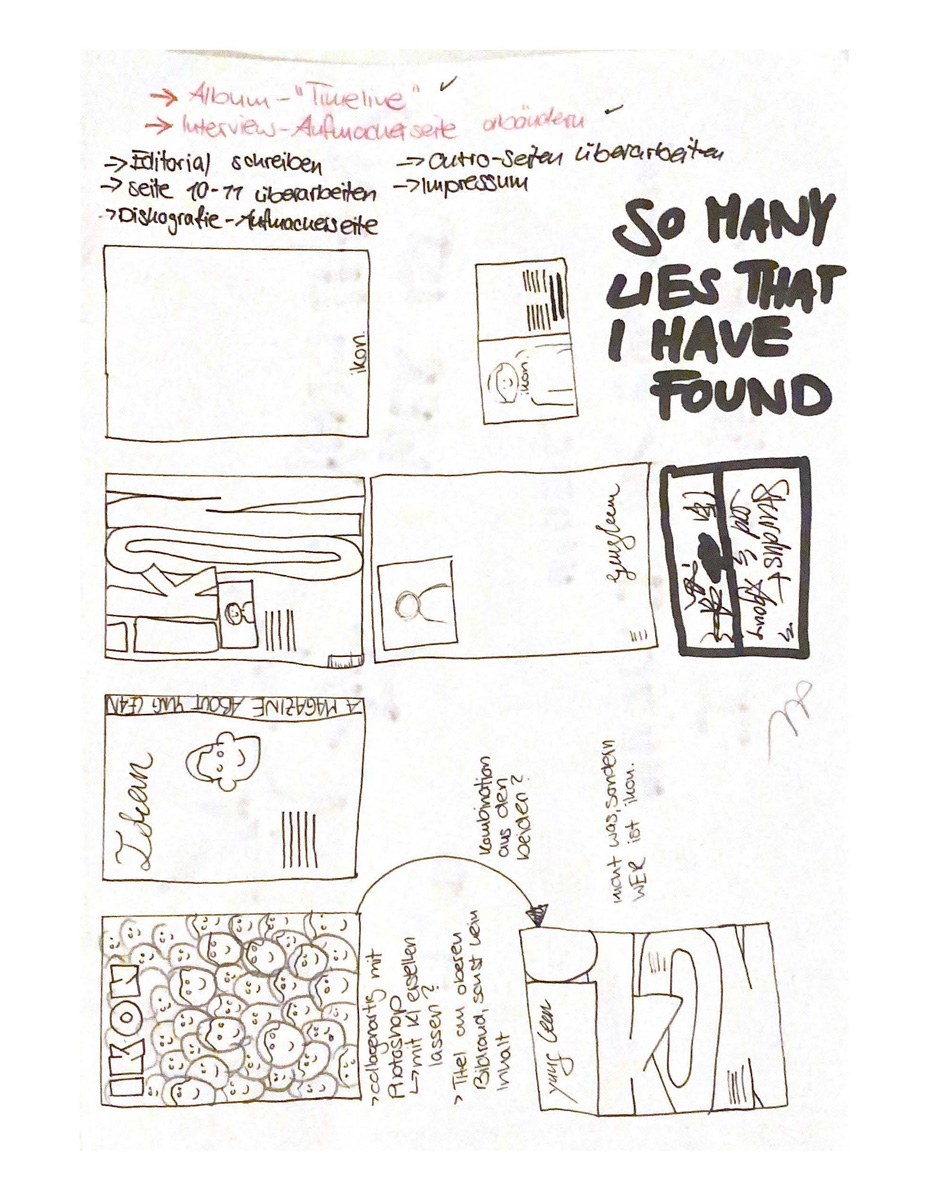 → Album-"Timeline" ✓
→ Interview-Aufmacherseite abändern ✓
→ Editorial schreiben
→ Seite 10-11 überarbeiten
→ Diskografie-Aufmacherseite
→ Outro-Seiten überarbeiten
→ Impressum
SO MANY
LIES THAT
I HAVE
FOUND
ikon.
ikon.
IKON
yung lean
A MAGAZINE ABOUT YUNG LEAN
Ikon
Kombination
aus den
beiden?
nicht was, sondern
WER ist ikon.
IKON
> collagenartig mit
Photoshop
↳ mit KI erstellen
lassen?
> Titel am oberen
Bildrand, sonst kein
Inhalt
yung lean
IKON